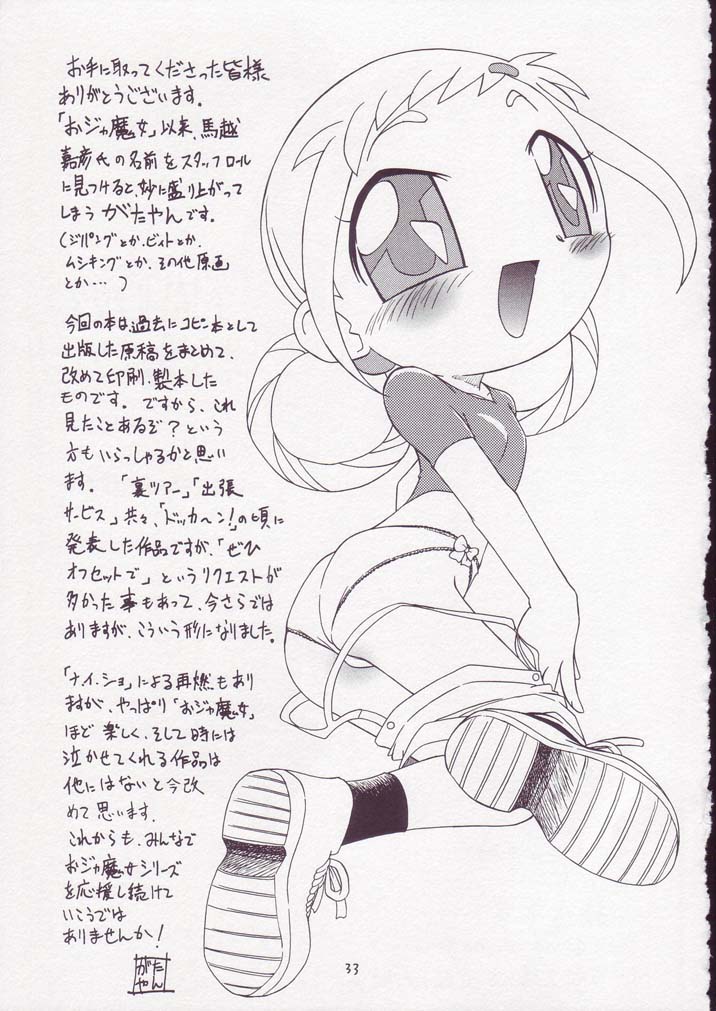 お手に取ってくださった皆様
ありがとうございます。
「おジャ魔女」以来、馬越
嘉彦氏の名前をスタッフロール
に見つけると、妙に盛り上がって
しまう がたやんです。
(ジパングとか、ビィトとか、
ムシキングとか、その他原画
とか…)
今回の本は過去にコピー本として
出版した原稿をまとめて、
改めて印刷、製本した
ものです。ですから、これ
見たことあるぞ?という
方もいらっしゃるかと思い
ます。「裏ツアー」「出張
サービス」共々、「ドッカ〜ン!」の頃に
発表した作品ですが、「ぜひ
オフセットで」というリクエストが
多かった事もあって、今さらでは
ありますが、こういう形になりました。
「ナイ・ショ」による再燃もあり
ますが、やっぱり「おジャ魔女」
ほど楽しく、そして時には
泣かせてくれる作品は
他にはないと今改
めて思います。
これからも、みんなで
おジャ魔女シリーズ
を応援し続けて
いこうでは
ありませんか!
がた
やん
33